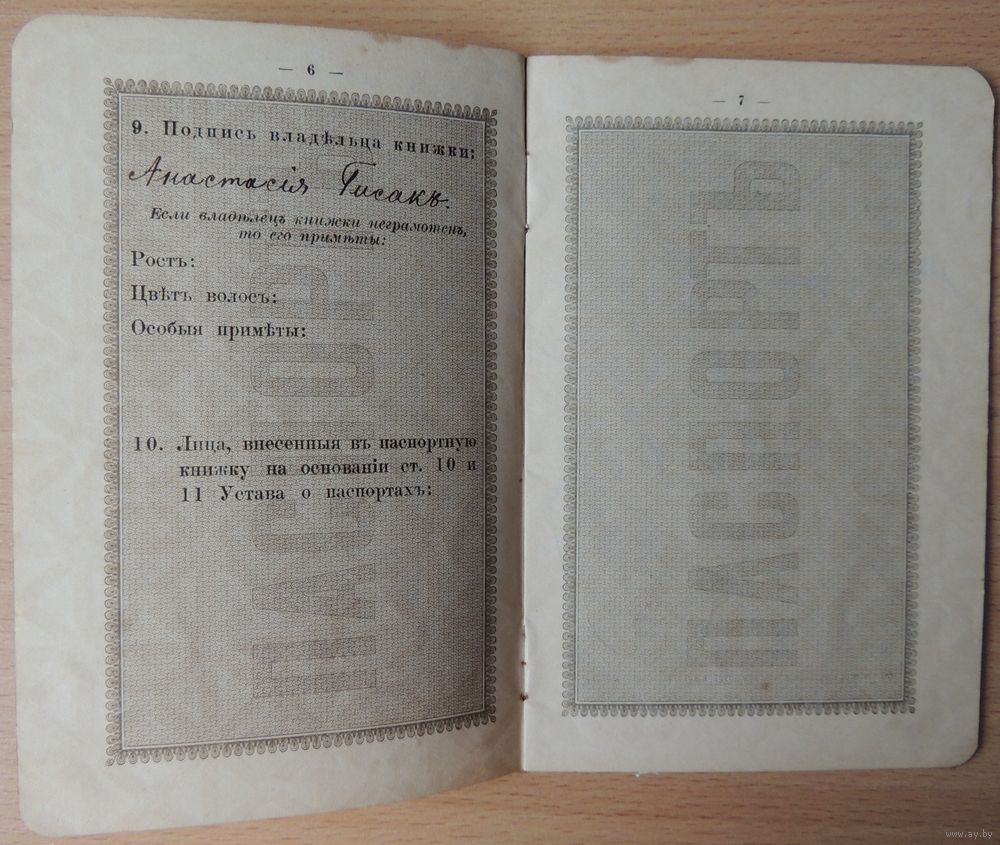 — 6 —
9. Подпись владѣльца книжки:
Анастасія Гисакъ.
Если владѣлецъ книжки неграмотенъ,
то его примѣты:
Ростъ:
Цвѣтъ волосъ:
Особыя примѣты:
10. Лица, внесенныя въ паспортную
книжку на основаніи ст. 10 и
11 Устава о паспортахъ:
ПАСПОРТЪ
— 7 —
ПАСПОРТЪ
www.ay.by